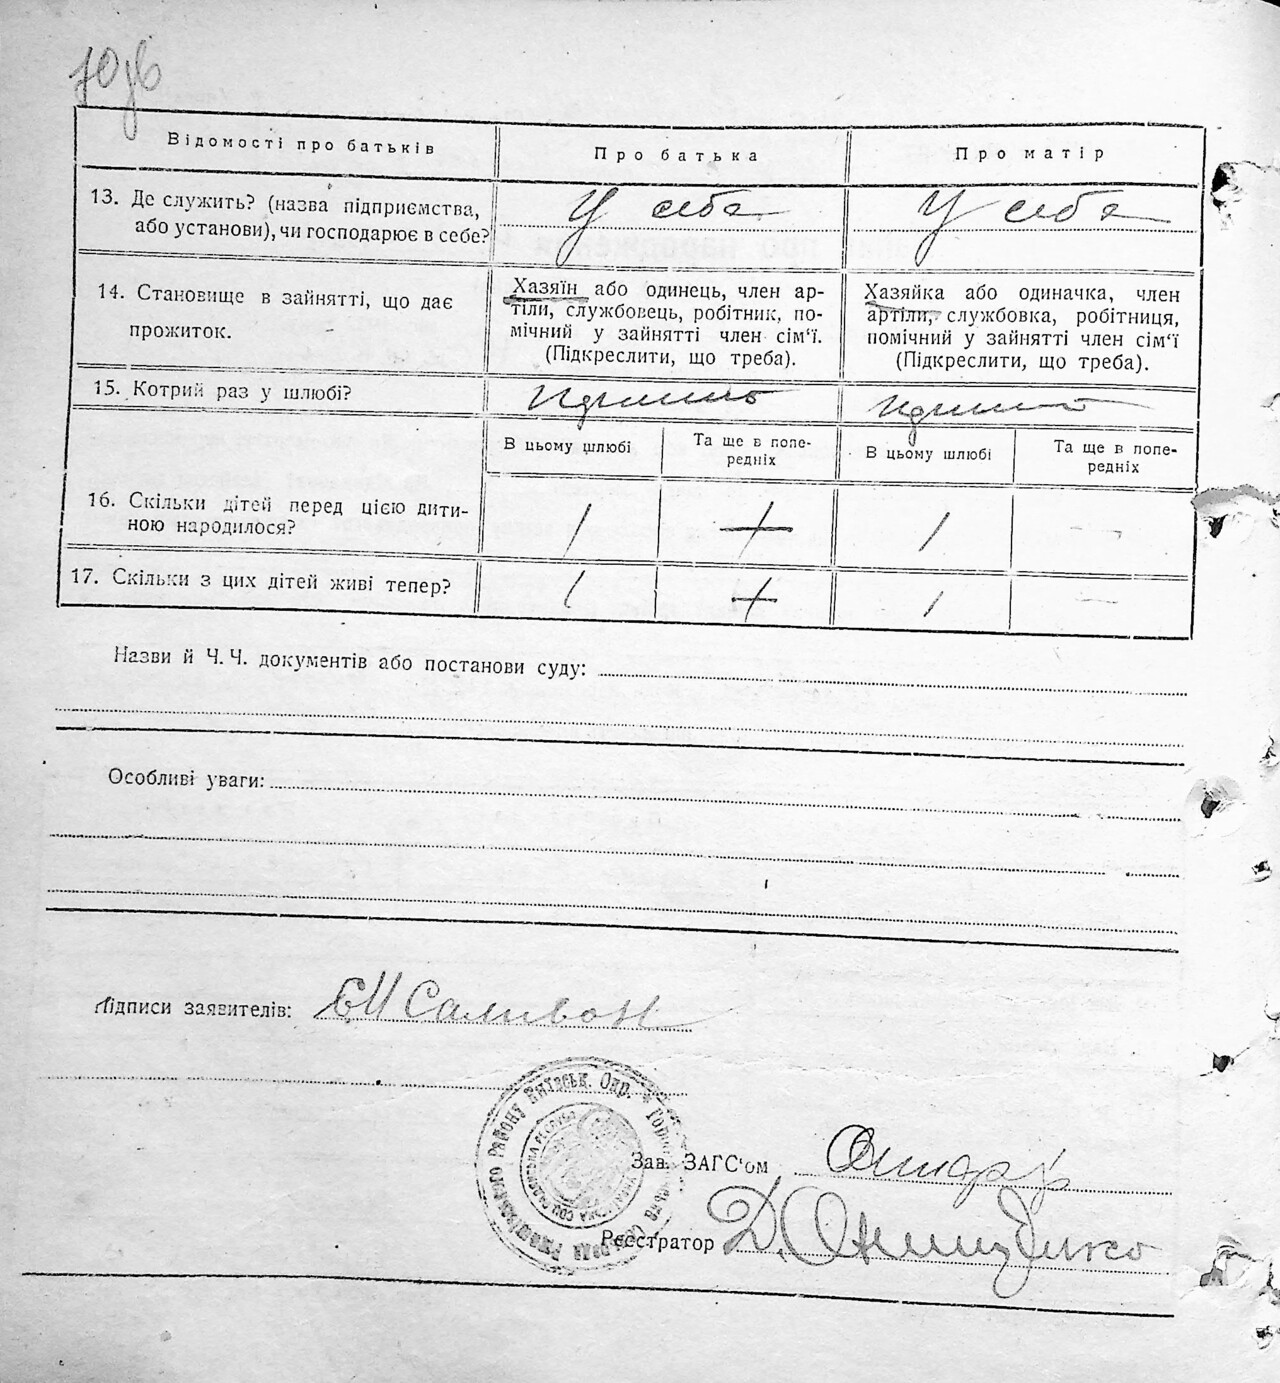 70 зв
Відомості про батьків
Про батька
Про матір
13. Де служить? (назва підприємства, або установи), чи господарює в себе?
У себе
У себе
14. Становище в зайнятті, що дає прожиток.
Хазяїн або одинець, член ар-
тіли, службовець, робітник, по-
мічний у зайнятті член сім‘ї.
(Підкреслити, що треба).
Хазяйка або одиначка, член
артіли, службовка, робітниця,
помічний у зайнятті член сім‘ї
(Підкреслити, що треба).
15. Котрий раз у шлюбі?
В цьому шлюбі
Та ще в попе-
редніх
В цьому шлюбі
Та ще в попе-
редніх
16. Скільки дітей перед цією дити-
ною народилося?
1
1
17. Скільки з цих дітей живі тепер?
1
1
Назви й Ч. Ч. документів або постанови суду:
Особливі уваги:
Підписи заявителів: Саливон
Району Київськ. Окр.
Зав. ЗАГС‘ом
Реєстратор Д.